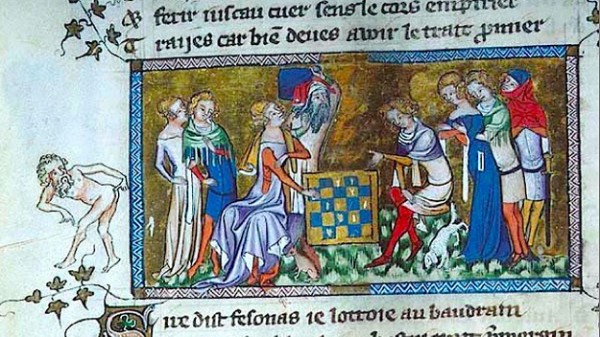 ferir iuscau cuer sens le cors empirier
Traijes car bien deues auoir le trait pmier
Sire dist fesonas ie lottoie au baudrain